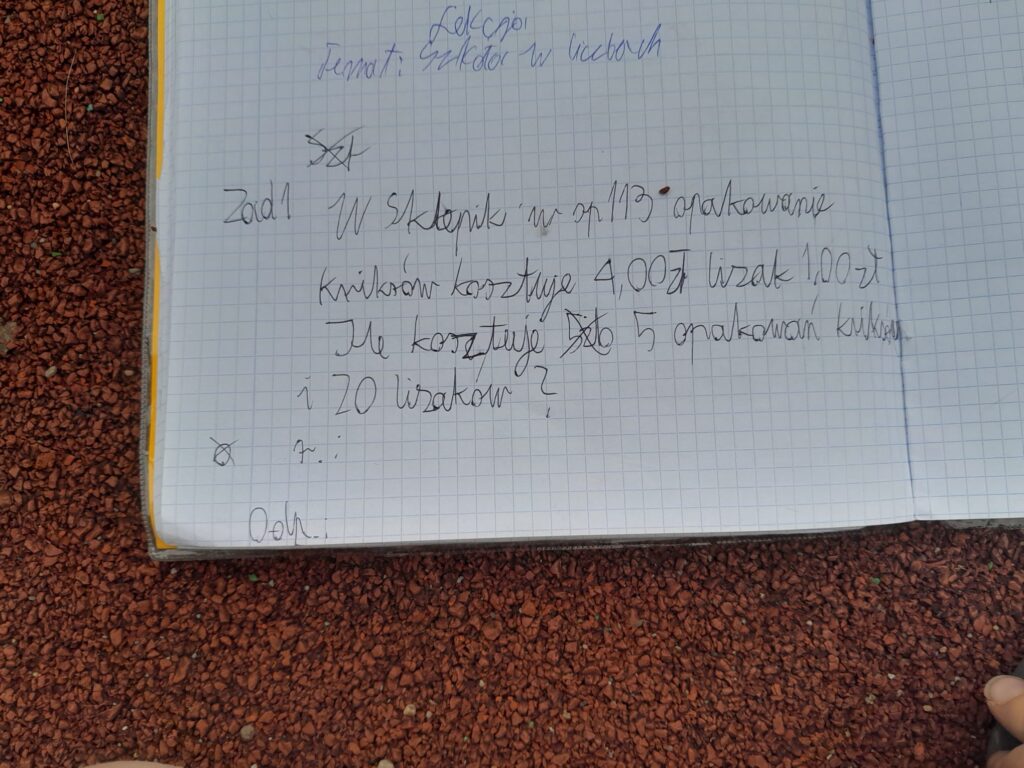 Lekcja
Temat: Szkoła w liczbach
Zad 1 W sklepik w sp 113 opakowanie
kniksów kosztuje 4,00zł lizak 1,00zł
Ile kosztuje 5 opakowań kniksów
i 20 lizaków?
r.:
Odp.: